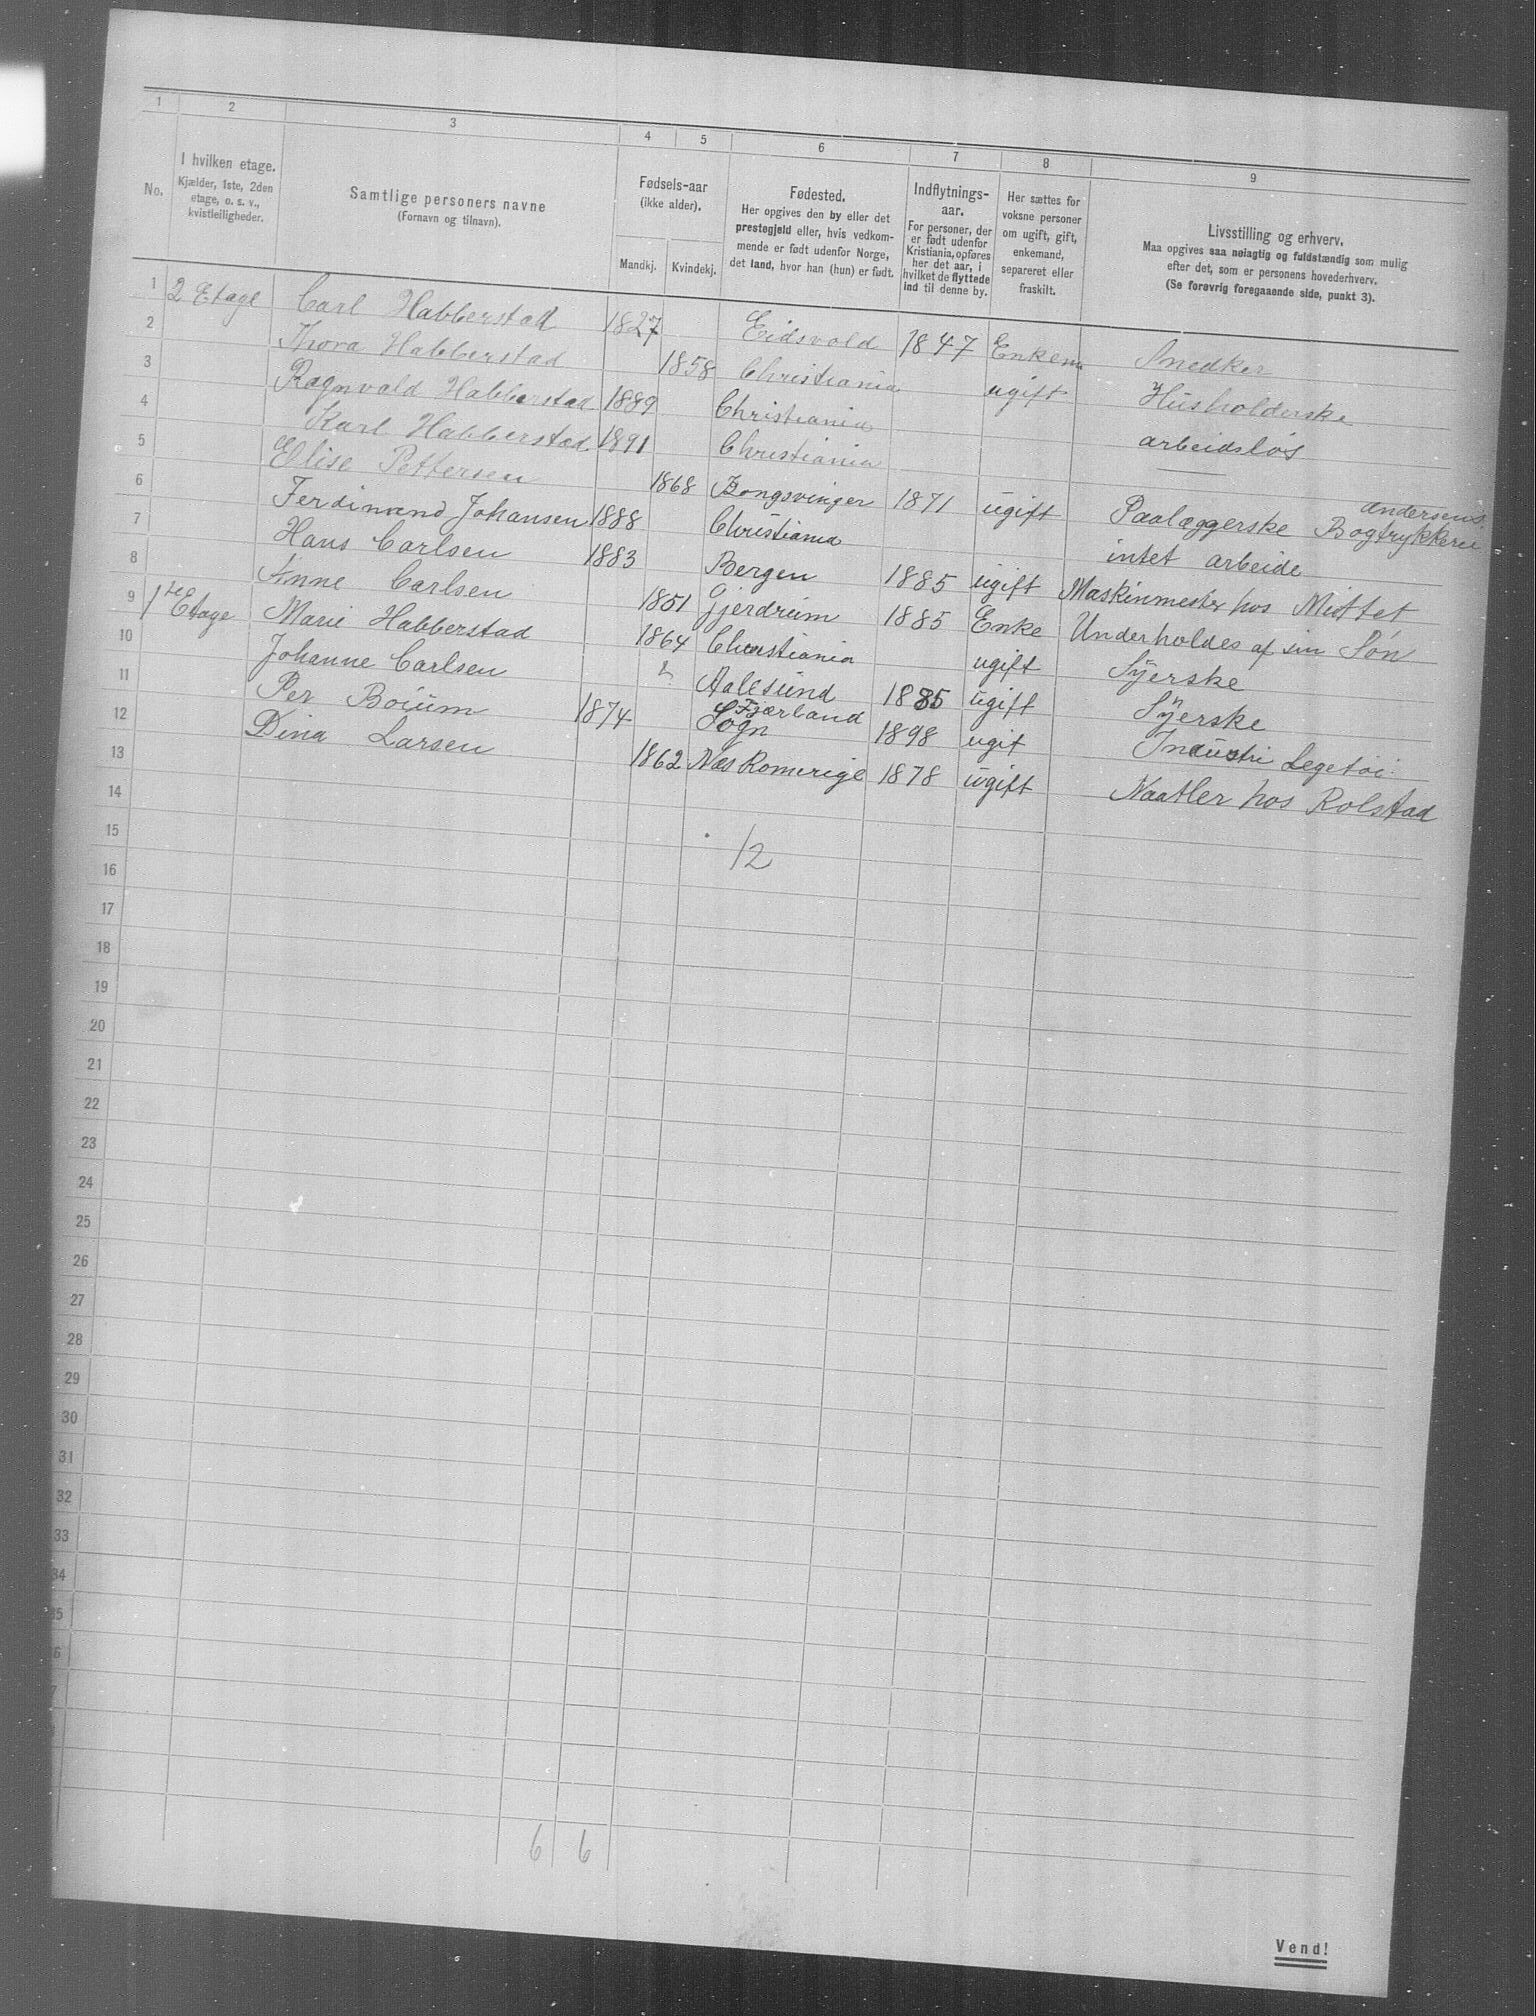 1 2 3 4 5 6 7 8 9
No.
I hvilken etage.
Kjælder, 1ste, 2den
etage, o. s. v.,
kvistleiligheder.
Samtlige personers navne
(Fornavn og tilnavn).
Fødsels-aar
(ikke alder).
Mandkj. Kvindekj.
Fødested.
Her opgives den by eller det
prestegjeld eller, hvis vedkom-
mende er født udenfor Norge,
det land, hvor han (hun) er født.
Indflytnings-
aar.
For personer, der
er født udenfor
Kristiania, opføres
her det aar, i
hvilket de flyttede
ind til denne by.
Her sættes for
voksne personer
om ugift, gift,
enkemand,
separeret eller
fraskilt.
Livsstilling og erhverv.
Maa opgives saa nøiagtig og fuldstændig som mulig
efter det, som er personens hovederhverv.
(Se forøvrig foregaaende side, punkt 3).
1 2 Etage Carl Habberstad 1827 Eidsvold 1847 Enkem Snedker
2 Thora Habberstad 1858 Christiania ugift Husholderske
3 Ragnvald Habberstad 1889 Christiania arbeidsløs
4 Karl Habberstad 1891 Christiania —
5 Elise Pettersen 1868 Kongsvinger 1871 ugift Paalæggerske Andersens Bogtrykkeri
6 Ferdinand Johansen 1888 Christiania intet arbeide
7 Hans Carlsen 1883 Bergen 1885 ugift Maskinmester hos Mittet
8 Anne Carlsen 1851 Gjerdrum 1885 Enke Underholdes af sin Søn
9 1ste Etage Marie Habberstad 1864 Christiania ugift Syerske
10 Johanne Carlsen ? Aalesund 1885 ugift Syerske
11 Per Boium 1874 Fjærland Sogn 1898 ugift Industri Legetøi
12 Dina Larsen 1862 Næs Romerige 1878 ugift hos Rolstad
13
14
15 12
16
17
18
19
20
21
22
23
24
25
26
27
28
29
30
31
32
33
34
35
6
7
6 6
Vend!